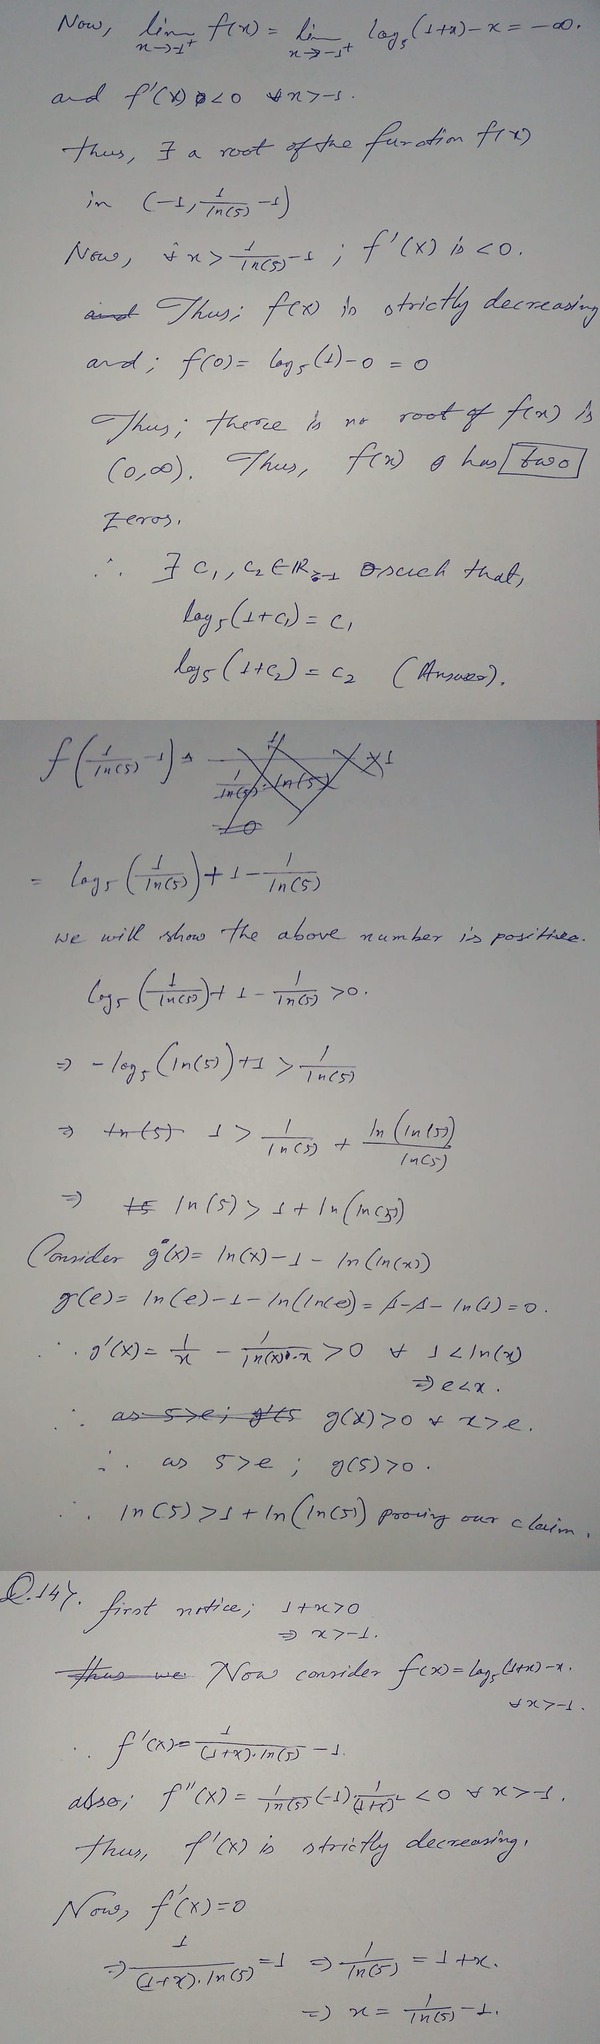 Now, lim_{x→-1⁺} f(x) = lim_{x→-1⁺} log₅(1+x) - x = -∞.
and f'(x) < 0 ∀ x > -1.
Thus, ∃ a root of the function f(x)
in (-1, 1/ln(5) - 1)
Now, ∀ x > 1/ln(5) - 1 ; f'(x) is < 0.
and Thus; f(x) is strictly decreasing
and; f(0) = log₅(1) - 0 = 0
Thus; there is no root of f(x) is
(0,∞). Thus, f(x) has two
zeros.
∴ ∃ c₁, c₂ ∈ ℝ_{>-1} such that,
log₅(1+c₁) = c₁
log₅(1+c₂) = c₂ (Answer).
f(1/ln(5) - 1) =
= log₅(1/ln(5)) + 1 - 1/ln(5)
we will show the above number is positive.
log₅(1/ln(5)) + 1 - 1/ln(5) > 0.
⇒ -log₅(ln(5)) + 1 > 1/ln(5)
⇒ ln(5) 1 > 1/ln(5) + ln(ln(5))/ln(5)
⇒ ln(5) > 1 + ln(ln(5))
Consider g(x) = ln(x) - 1 - ln(ln(x))
g(e) = ln(e) - 1 - ln(ln e) = 1 - 1 - ln(1) = 0.
∴ g'(x) = 1/x - 1/(ln(x)·x) > 0 ∀ 1 < ln(x)
⇒ e < x.
∴ as 5 > e; g'(5 g(x) > 0 ∀ x > e.
∴ as 5 > e ; g(5) > 0.
∴ ln(5) > 1 + ln(ln(5)) proving our claim.
Q.147. first notice; 1+x > 0
⇒ x > -1.
Thus we Now consider f(x) = log₅(1+x) - x.
∀ x > -1.
∴ f'(x) = 1/((1+x)·ln(5)) - 1.
also; f''(x) = 1/ln(5) (-1) 1/(1+x)² < 0 ∀ x > -1.
Thus, f'(x) is strictly decreasing.
Now, f'(x) = 0
⇒ 1/((1+x)·ln(5)) = 1 ⇒ 1/ln(5) = 1+x.
⇒ x = 1/ln(5) - 1.